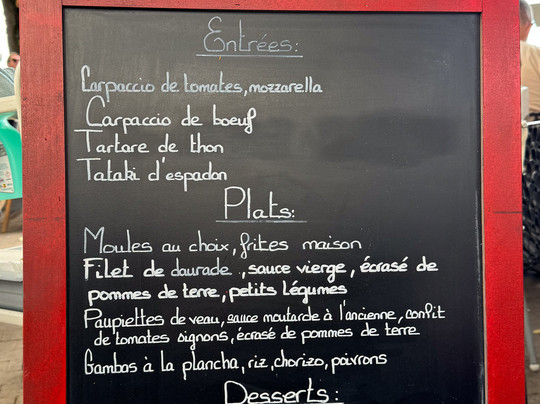 Entrées:
Carpaccio de tomates, mozzarella
Carpaccio de boeuf
Tartare de thon
Tataki d'espadon
Plats:
Moules au choix, frites maison
Filet de daurade, sauce vierge, écrasé de
pommes de terre, petits légumes
Paupiettes de veau, sauce moutarde à l'ancienne, confit
de tomates oignons, écrasé de pommes de terre
Gambas à la plancha, riz, chorizo, poivrons
Desserts: